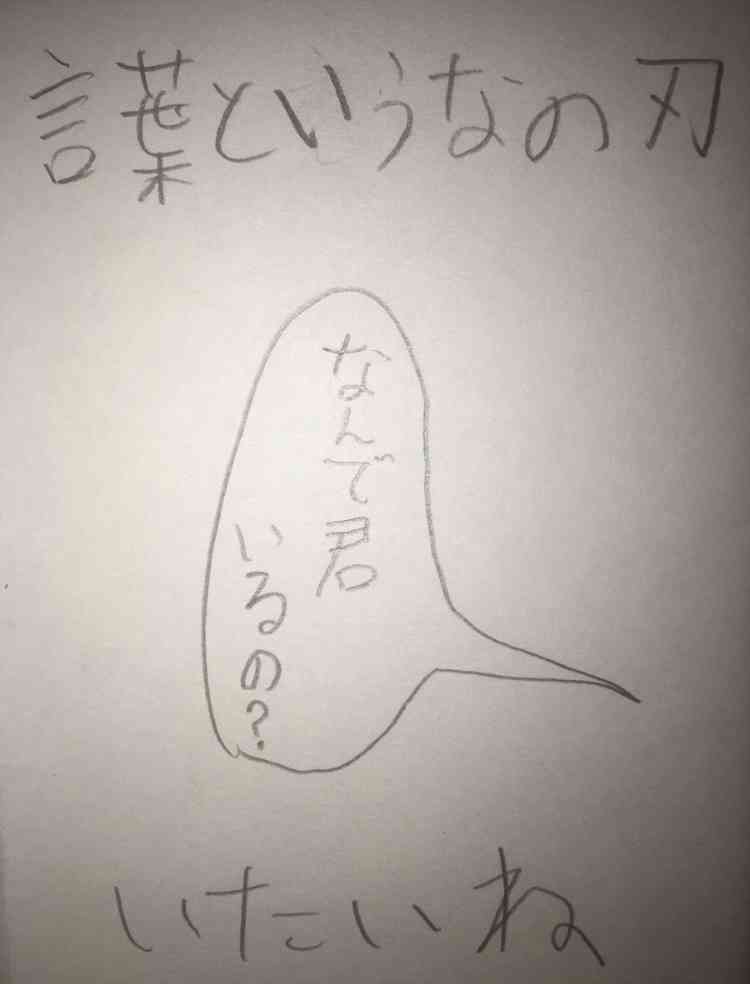 言葉というなの刃
なんで君
いるの?
いたいね